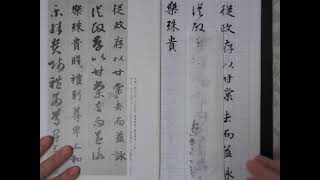 從政存以甘棠去而益詠
從政
樂殊貴
從政存以甘棠去而益詠
從政存以甘棠去而益詠
樂殊貴賤禮別尊卑上和
樂殊貴賤禮別尊卑上